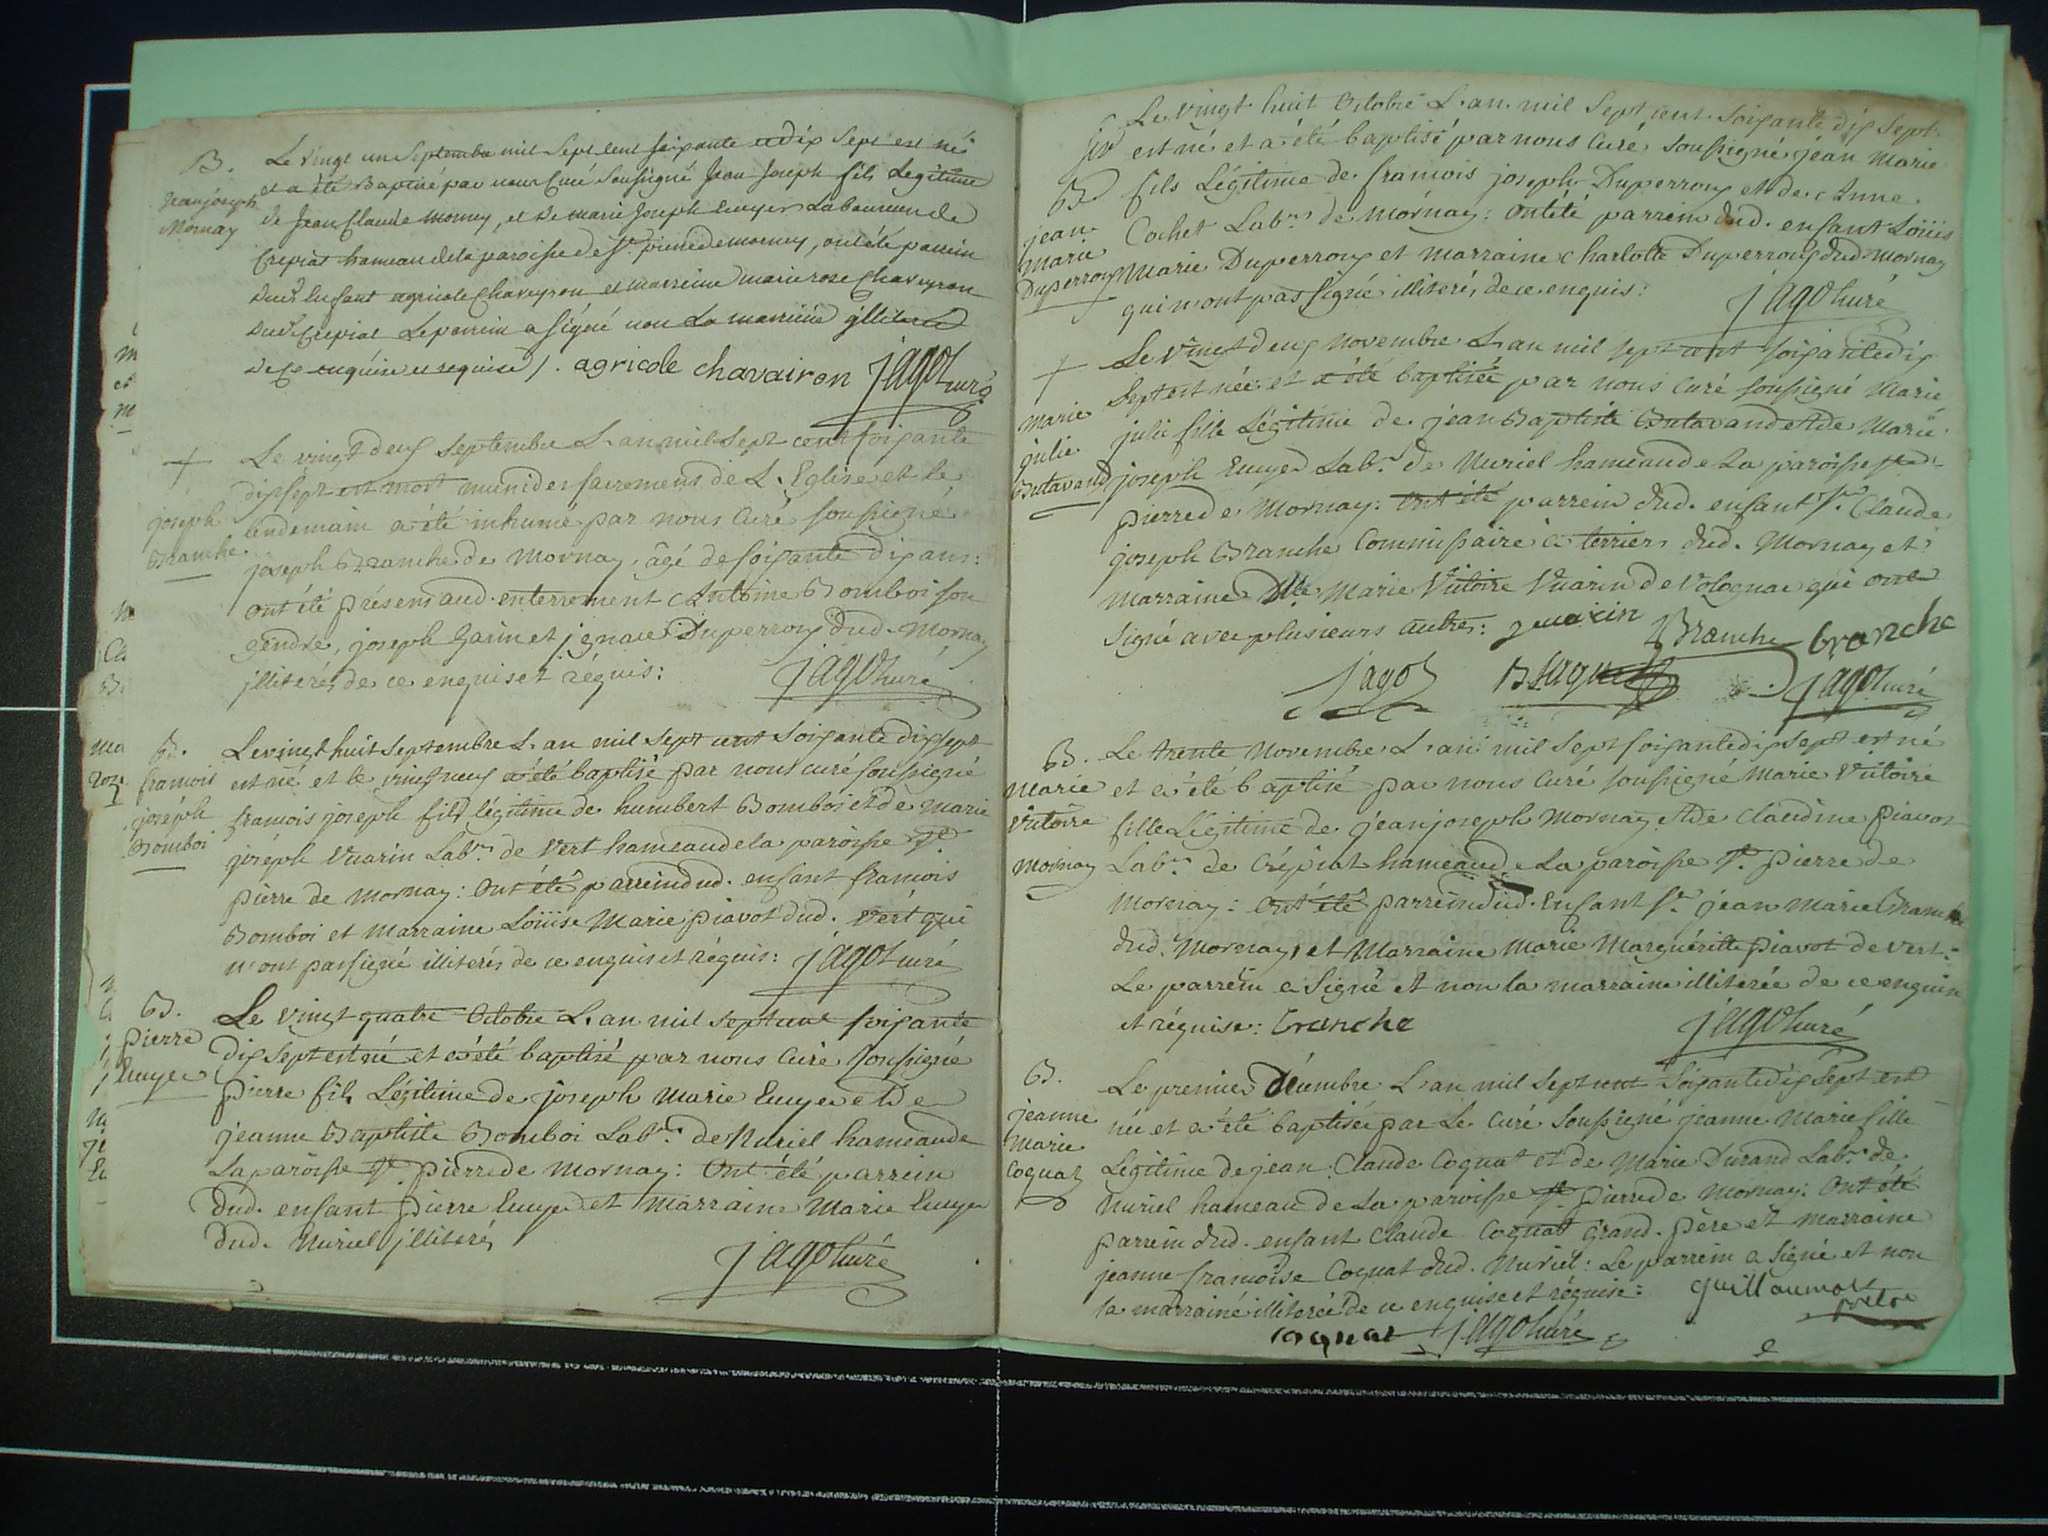 B.
Jean joseph
Mornay
Le vingt un Septembre mil Sept Cent soixante et dix Sept est né
et a été Baptisé par nous Curé Soussigné Jean Joseph fils Legitime
de Jean Claude Mornay, et de Marie Joseph Emyer Laboureur de
Crepiat hameau de la paroisse de St. pierre de mornay, ont été parrein
dud. Enfant agricole Chaveyron et marreine marie rose Chaveyron
dud. Crepiat Le parrein a signé non La marreine illiteré
de ce enquise et requise /. agricole chavairon jagot curé
+
joseph
Branche
Le vingt deux Septembre L'an mil Sept cent soixante
dix sept est mort muni des sacremens de L'Eglise et le
lendemain a été inhumé par nous Curé soussigné
joseph Branche de Mornay, âgé de soixante dix ans:
ont été présens aud. enterrement Antoine Bomboi son
gendre, joseph Garin et ignace Duperroux dud. Mornay
jlliterés de ce enquis et réquis: jagot curé
B.
francois
joseph
Bomboi
Le vingt huit Septembre L'an mil Sept cent Soixante dix sept
est né et le vingt neuf a été baptisé par nous curé soussigné
francois joseph fils légitime de humbert Bomboi et de Marie
joseph Vuarin Labr. de Vert hameau de la paroisse St.
pierre de Mornay: Ont été parrein dud. enfant francois
Bomboi et Marraine Loüise Marie piavot dud. Vert qui
n'ont pas signé illiterés de ce enquis et réquis: jagot curé
B.
Pierre
Emyer
Le Vingt quatre Octobre L'an mil Sept cent soixante
dix Sept est né et a été baptisé par nous Curé soussigné
pierre fils Légitime de joseph Marie Emyer et de
jeanne Baptiste Bomboi Labr. de Nuriel hameau de
La paroisse St. pierre de Mornay: Ont été parrein
dud. enfant pierre Emyer et Marraine Marie Emyer
dud. Nuriel jlliterés
jagot curé
B
jean
marie
Duperroux
Le vingt huit Octobre L'an mil Sept cent Soixante dix Sept
est né et a été baptisé par nous Curé Soussigné jean Marie
fils Légitime de francois joseph Duperroux et de Anne
Cochet Labrs. de Mornay: Ont été parrein dud. enfant Loüis
Marie Duperroux et Marraine Charlotte Duperroux dud. Mornay
qui n'ont pas signé illiterés de ce enquis: jagot curé
+
Marie
julie
Butavand
Le Vingt deux novembre L'an mil sept cent soixante dix
Sept est née et a été baptisée par nous curé soussigné Marie
julie fille Légitime de jean Baptiste Butavand et de Marie
joseph Emyer Labr. de Nuriel hameau de La paroisse St.
pierre de Mornay: Ont été parrein dud. enfant Sr. Claude
joseph Branche Commissaire à terriers dud. Mornay et
Marraine Dlle Marie Victoire Vuarin de Volognac qui ont
Signé avec plusieurs autres: vuarin Branche branche
jagot jagot curé
B.
Marie
Victoire
Mornay
Le trente Novembre L'an mil Sept soixante dix sept est né
et a été baptisé par nous Curé soussigné Marie Victoire
fille Légitime de jean joseph Mornay et de Claudine piavot
Labrs. de Crépiat hameau de La paroisse St. pierre de
Mornay: Ont été parrein dud. enfant Sr. jean Marie Branche
dud. Mornay, et Marraine Marie Marguéritte piavot de Vert:
Le parrein a Signé et non la marraine illiterée de ce enquise
et réquise: branche jagot curé
B.
jeanne
Marie
Coquat
Le premier décembre L'an mil Sept cent Soixante dix Sept est
née et a été baptisée par Le Curé soussigné jeanne Marie fille
Légitime de jean Claude Coquat et de Marie Durand Labrs. de
Nuriel hameau de La paroisse St. pierre de Mornay: Ont été
parrein dud. enfant Claude Coquat Grand-père et marraine
jeanne francoise Coquat dud. Nuriel: Le parrein a signé et non
la marraine illiterée de ce enquise et réquise: guillaumot
coquat jagot curé